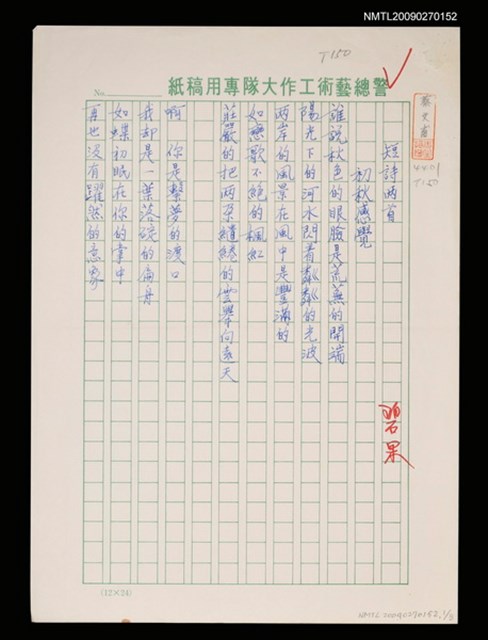 NMTL20090270152
T150
警總藝術工作大隊專用稿紙
No.
短詩兩首
初秋感覺
誰說秋色的眼臉是荒蕪的開端
陽光下的河水閃着粼粼的光波
兩岸的風景在風中是豐滿的
如戀歌不絕的楓紅
莊嚴的把兩朵繾綣的雲舉向遠天
啊 你是繫夢的渡口
我却是一葉落碇的扁舟
如蝶初眠在你的掌中
再也没有躍然的意象
碧果
T150
(12×24)
NMTL20090270152, 1/3